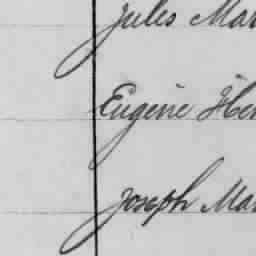 Jules Mar
Eugène Hen
Joseph Mar